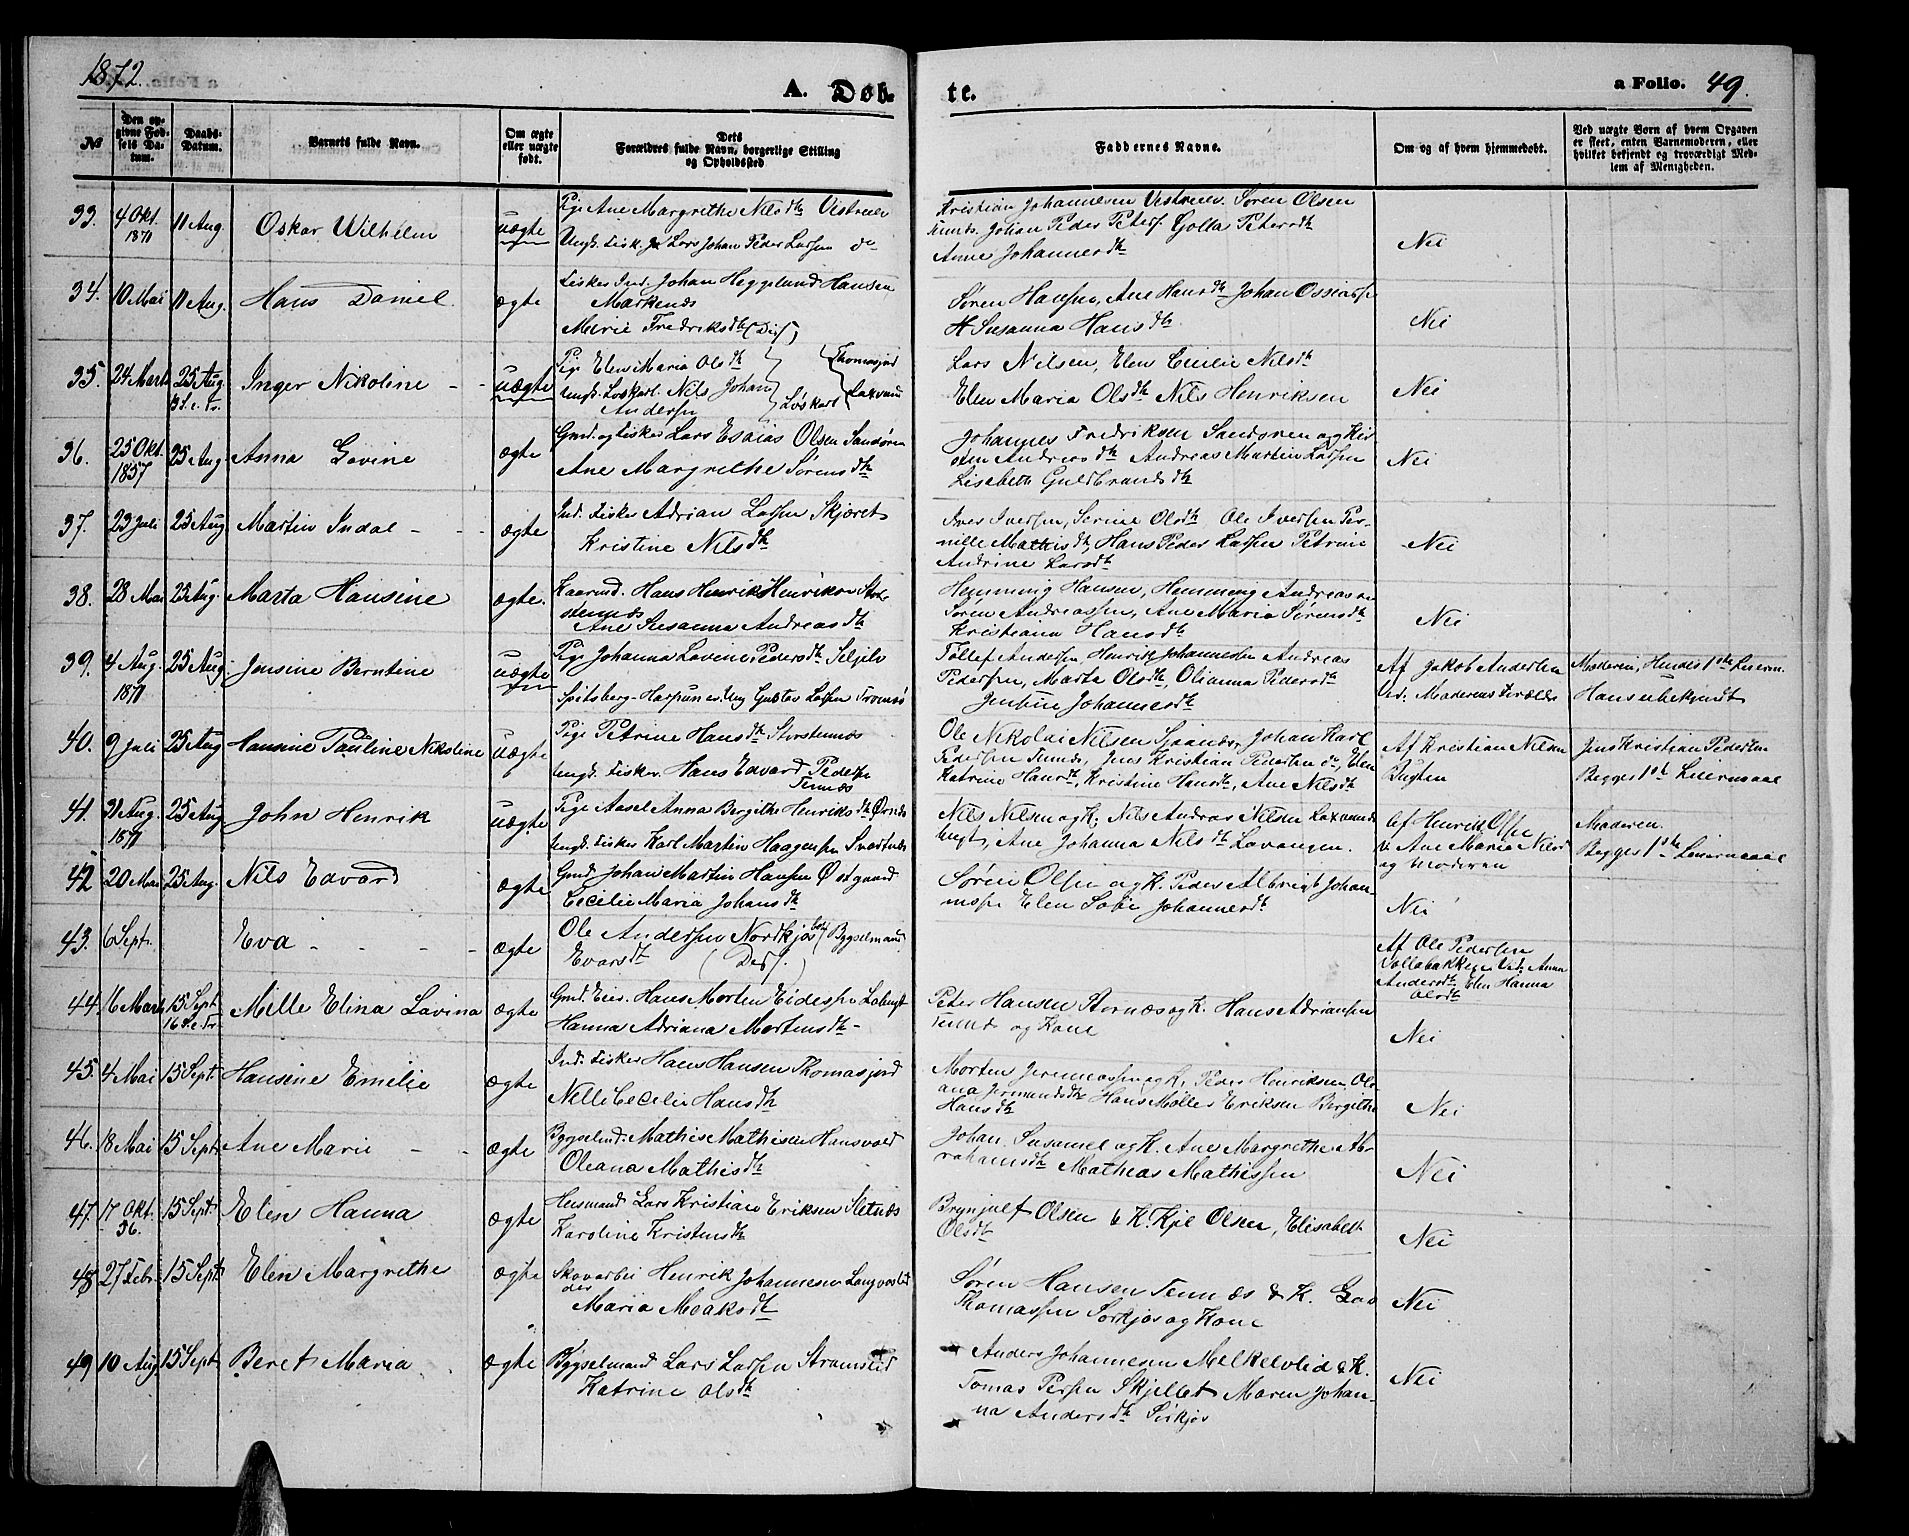 1872.
A. Døb-
te.
a Folio. 49.
№
Den op-
givne Fød-
sels Da-
tum.
Daabs-
Datum.
Barnets fulde Navn.
Om ægte
eller uægte
født.
Dets
Forældres fulde Navn, borgerlige Stilling
og Opholdssted
Faddernes Navne.
Om og af hvem hjemmedøbt.
Ved uægte Børn af hvem Opgaven
er skeet, enten Barnemoderen, eller
hvilket bekjendt og troværdigt Med-
lem af Menigheden.
33. 4 Okt. 1871 11 Aug. Oskar Wilhelm uægte
Pige Ane Margrethe Nilsdtr
Ungk. Fisk. Lars Johan Peder Larsen do
Kristian Johannesen Søren Olsen
Johan Peder Peters. Golla Petersdtr
Anne Johannesdtr
Nei
34. 10 Mai 11 Aug. Hans Daniel ægte
Fisker Ind. Johan Heggelund Hansen
Markenes
Marie Fredriksdtr (Dis.)
Søren Hansen, Ane Hansdtr Johan
H Susanna Hansdtr.
Nei
35. 24 Marts 25 Aug. 13 S. e. Tr. Inger Nikoline - - uægte
Pige Elen Maria Olsdtr Thomasjord
Ungk. Løskarl. Nils Johan
Andersen Løskarl
Lars Nilsen, Elen Emilie Nilsdtr
Elen Maria Olsdtr Nils Henriksen
Nei
36. 25 Okt. 1857 25 Aug Anna Lovine ægte
Gmd. og Fisker Lars Esaias Olsen Sandøren
Ane Margrethe Sørensdtr
Johannes Fredriksen Sandøren og Kir-
sten Andreasdtr Andreas Martin Larsen
Lisabeth Guldbrandsdtr
Nei
37. 23 Juli 25 Aug Martin Indal - - ægte
Ind. Fisker Adrian Larsen Skjæret
Kristine Nilsdtr
Iver Iversen, Serine Olsdtr Ole Iversen Per-
nille Mathisdtr, Hans Peder Larsen Petrine
Andrine Larsdtr
Nei
38. 28 Mai 25 Aug. Marta Hansine ægte.
Hans Henrik Henriksen Stor-
stennes
Ane Susanna Andreasdtr
Hemming Hansen, Hemming Andreassen
Søren Andreassen, Ane Maria Sørensdtr
Kristiana Hansdtr
Nei
39. 4 Aug. 1871 25 Aug. Jensine Berntine uægte
Pige Johanna Lovine Pedersdtr Seljelv
Spitsberg-Harpuner Ung Gustav Larsen Tromsø
Tollef Andersen, Henrik Johannesen Andreas
Pedersen, Marta Olsdtr, Olianna Pedersdtr
Jensine Johannesdtr
Af Jakob Andersen
Ved. Moderens Forældre
Moderen; Hendes 1ste Leierm.
Hans ubekjendt
40. 9 Juli 25 Aug Hansine Pauline Nikoline uægte
Pige Petrine Hansdtr Storstennes
Ungk. Fisker. Hans Edvard Pedersen
Tennes
Ole Nikolai Nilsen Johan Karl
Pedersen Tennes, Jens Kristian Pedersen do, Elen
Katrine Hansdtr, Kristine Hansdtr, Ane Nilsdtr
Af Kristian Nilsen
Bugten
Jens Kristian Pedersen
Begges 1ste Leiermaal
41. 31 Aug. 1871 25 Aug John Henrik uægte
Pige Aasel Anna Bergithe Henriksdtr
Ungk. Fisker Karl Martin Haagensen Svartnes
Nils Nilsen og K; Nils Andreas Nilsen Laxvand
Ane Johanna Nilsdtr Lavangen.
Af Henrik Olsen
v. Ane Maria Nilsd
og Moderen
Moderen.
Begges 1ste Leiermaal
42 20 Mai 25 Aug. Nils Edvard ægte
Gmd. Johan Martin Hansen Østgaard
Cecilie Maria Johansdtr
Søren Olsen og K. Peder Albrigt Johan-
nesen Elen Sofie Johannesdtr
Nei
43. 6 Sept. Eva - - - ægte
Ole Andersen Nordkjosbotn Bygselmand
Evarsdtr (Des.)
Af Ole Pedersen
Vollabakken Ved. Anna
Andersdtr, Elen Hanna
Olsdtr
44. 16 Marts 15 Sept. 16 S. e. Tr. Mille Elina Lavina ægte
Gmd. Eier. Hans Morten Eidesen
Hanna Adriana Mortensdtr -
Peter Hansen Stornes og K. Hans Adriansen
Tennes og Kone
Nei
45. 4 Mai 15 Sept. Hansine Emelie ægte
Ind. Fisker Hans Hansen Thomasjord
Nelle Cecilie Hansdtr
Morten Jeremiassen og K, Peder Henriksen, Ol-
ana Hans Møller Eriksen Bergithe
Hansdtr
Nei
46. 18 Mai 15 Sept. Ane Marie - - ægte
Bygselmd. Mathis Mathisen Hansvold
Oleana Mathisdtr
Johan Susamel og K. Ane Margrethe Ab-
rahamsdtr Matheas Mathissen
Nei
47. 17 Okt. 36. 15 Sept. Elen Hanna ægte
Huusmand Lars Kristian Eriksen Sletnes
Karoline Kristensdtr
Brynjulf Olsen & K. Kjel Olsen, Elisabeth
Olsdtr
Nei
48 27 Febr. 15 Sept. Elen Margrethe ægte
Skovarbei
der Henrik Johannesen
Maria Moaksdtr
Søren Hansen Tennes & K.
Thomassen Sørkjos og Kone
Nei
49 10 Aug. 15 Sept Beret Maria ægte
Bygselmand Lars Larsen Strømslid
Katrine Olsdtr
Anders Johannesen Melkelvlid & K.
Tomas Persen Skjellet Maren Johan-
na Andersdtr Sørkjos
Nei